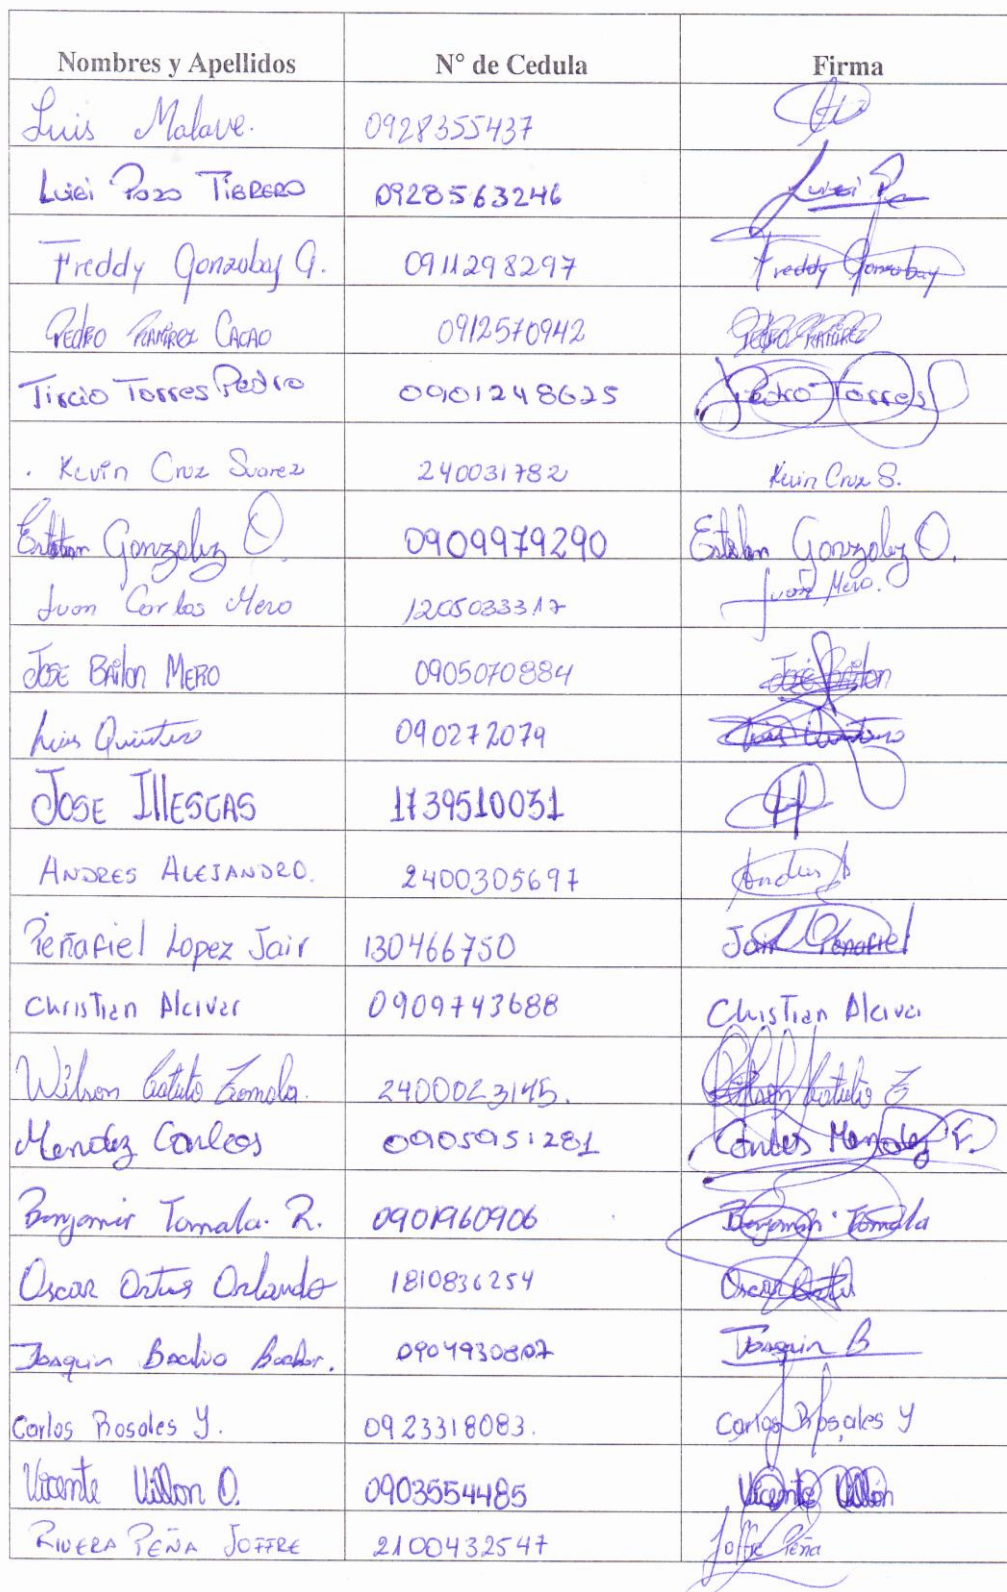 Nombres y Apellidos N° de Cedula Firma
Luis Malave. 0928355437
Luisi Pozo Tigrero 0928563246 Luisi P
Freddy Gonzabay G. 0911298297 Freddy Gonzabay
Pedro Ramirez Cacao 0912570942 Pedro Ramirez
Tircio Torres Pedro 0901248625 Pedro Torres
Kevin Cruz Suarez 240031782 Kevin Cruz S.
Esteban Gonzalez O. 0909979290 Esteban Gonzalez O.
Juan Carlos Mero 1205033317 Juan Mero.
JOSE Bailon MERO 0905070884 José Bailon
Luis Quintero 090272079 Luis Quintero
JOSE IllESCAS 1739510031
ANDRES ALEJANDRO. 2400305697 Andres A
Peñafiel Lopez Jair 130466750 Jair Penafiel
Christian Alcivar 0909743688 Christian Alcivar
Wilson Tomala. 2400023145. Wilson
Mendez Carlos 0905951281 Carlos Mendez F.
Benjamin Tomala. R. 0901960906 Benjamin Tomala
Oscar Orlando 1810836254 Oscar
Joaquin 0904930807 Joaquin B
Carlos Rosales Y. 0923318083. Carlos Rosales Y
Vicente Villon O. 0903554485 Vicente Villon
RIVERA PEÑA JOFFRE 2100432547 Joffre Peña